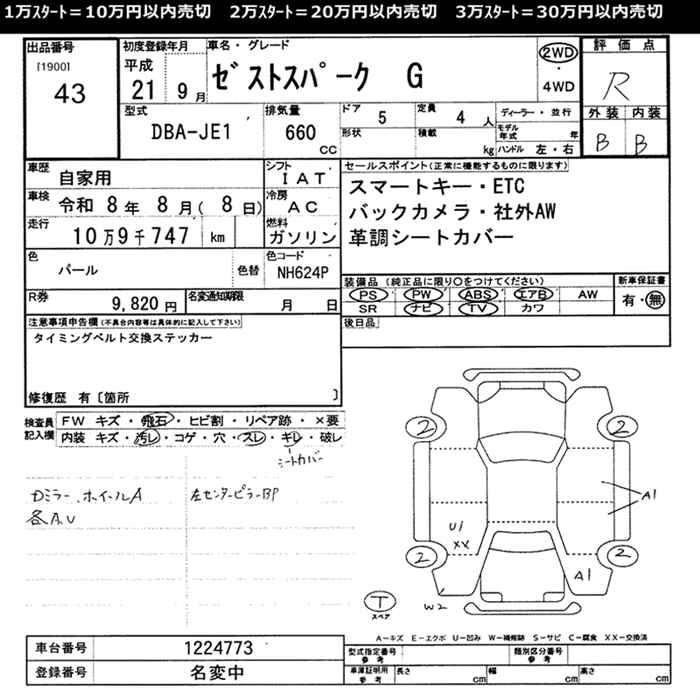 1万ｽﾀｰﾄ＝10万円以内売切　2万ｽﾀｰﾄ＝20万円以内売切　3万ｽﾀｰﾄ＝30万円以内売切
出品番号
[1900]
43
初度登録年月
平成
21 9月
車名・グレード
ｾﾞｽﾄｽﾊﾟｰｸ G
2WD
・
4WD
評価点
R
外装 内装
B B
型式
DBA-JE1
排気量
660
cc
ドア 5
定員 4 人
形状
積載 kg
ディーラー・並行
モデル年式 年
ハンドル 左・右
車歴
自家用
シフト
IAT
車検
令和 8年 8月( 8日)
冷房
AC
走行
10万9千747 km
燃料
ガソリン
色
パール
色替
色コード
NH624P
セールスポイント(正常に機能するものに限ります)
スマートキー・ETC
バックカメラ・社外AW
革調シートカバー
R券
9,820 円
名変通知期限
月 日
装備品 (純正品に限り○をつけてください)
PS PW ABS エアB AW
SR ナビ TV カワ
新車保証書
有・無
後日品
注意事項申告欄(不具合内容等は具体的に記入して下さい)
タイミングベルト交換ステッカー
修復歴 有〔箇所 〕
検査員
記入欄
FW キズ・飛石・ヒビ割・リペア跡・×要
内装 キズ・汚レ・コゲ・穴・スレ・キレ・破レ
シートカバー
Dミラー、ホイールA
各A.U
左センターピラーBP
2
2
2
2
A1
U1
XX
A1
W2
T
スペア
A－キズ E－エクボ U－凹み W－補修跡 S－サビ C－腐食 XX－交換済
車台番号
1224773
登録番号
名変中
型式指定番号
参考
類別区分番号
参考
車庫証明用
参考
長さ cm
幅 cm
高さ cm